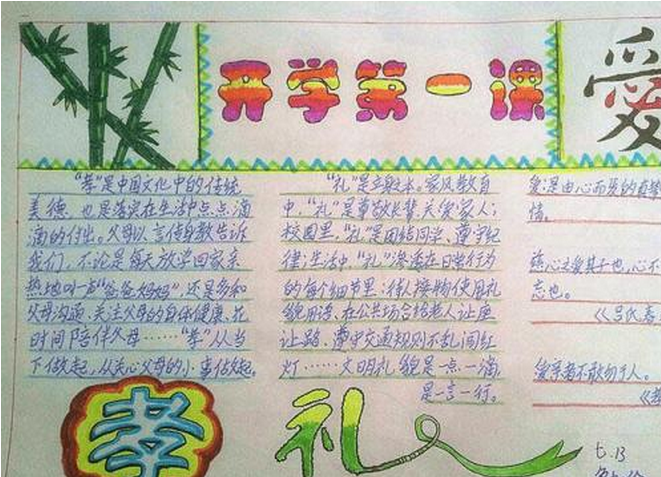 开学第一课
爱
"孝"是中国文化中的传统
美德,也是落实在生活中点点滴
滴的付出。父母以言传身教告诉
我们,不论是每天放学回家亲
热地叫一声"爸爸妈妈",还是多和
父母沟通,关注父母的身体健康,花
时间陪伴父母……"孝"从当
下做起,从关心父母的小事做起。
孝
"礼"是立身之本。家风教育
中,"礼"是尊敬长辈,关爱家人;
校园里,"礼"是团结同学、遵守纪
律;生活中,"礼"渗透在日常行为
的每个细节里:待人接物使用礼
貌用语、在公共场合给老人让座
让路、遵守交通规则不乱闯红
灯……文明礼貌是一点一滴,
是一言一行。
礼
爱是由心而发的真挚
情。
慈心之爱其子也,心不
忘也。
《吕氏春
爱亲者不敢勿于人。
《孝
七.13